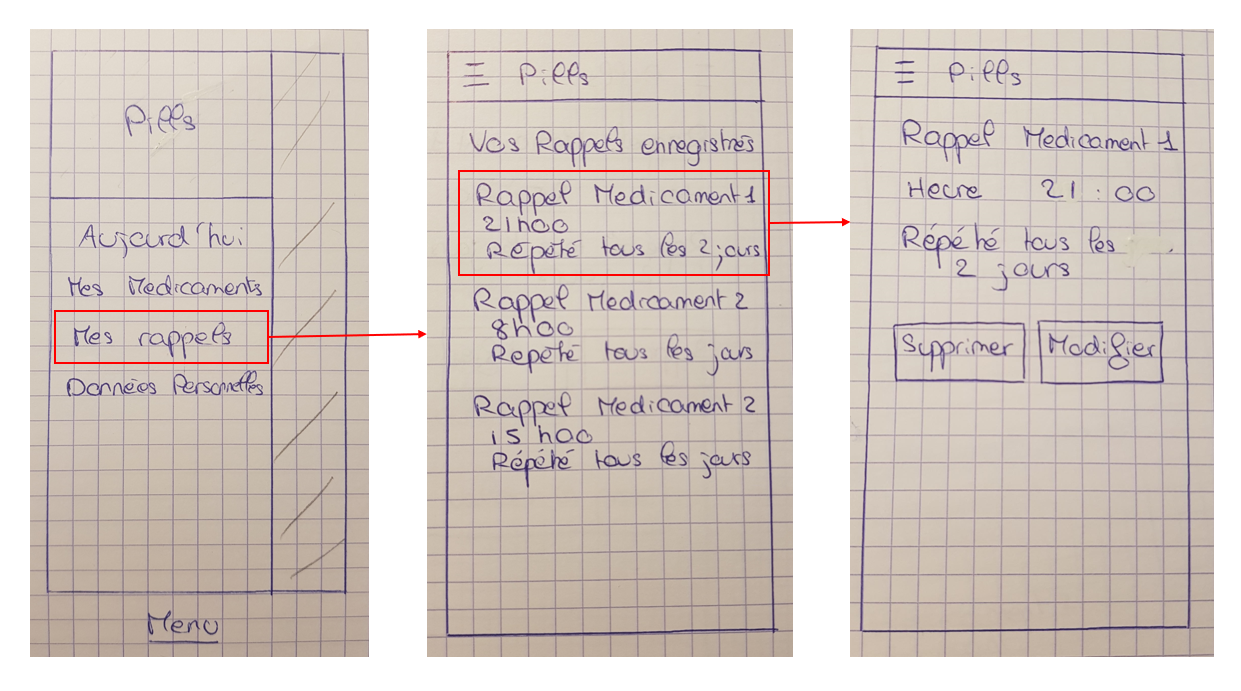 Pills
Aujourd'hui
Mes Medicaments
Mes rappels
Données Personnelles
Menu
Pills
Vos Rappels enregistrés
Rappel Medicament 1
21h00
Répété tous les 2 jours
Rappel Medicament 2
8h00
Repété tous les jours
Rappel Medicament 2
15h00
Répété tous les jours
Pills
Rappel Medicament 1
Heure 21:00
Répété tous les
2 jours
Supprimer Modifier